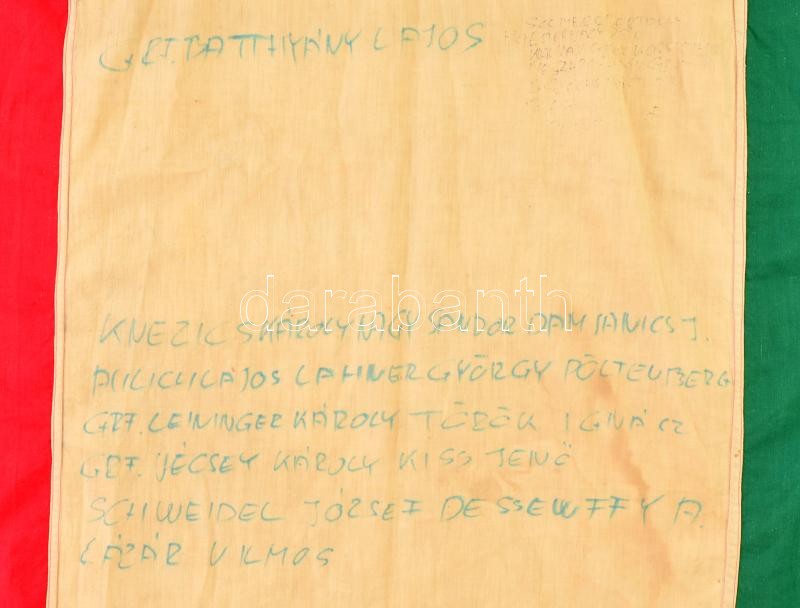 GRF. BATTHYÁNY LAJOS
darabanth
KNEZICS KÁROLY NAGY SÁNDOR DAMJANICS J.
AULICH LAJOS LAHNER GYÖRGY PÖLTENBERG
GRF. LEININGER KÁROLY TÖRÖK IGNÁCZ
GRF. VÉCSEY KÁROLY KISS JENŐ
SCHWEIDEL JÓZSEF DESSEWFFY A.
LÁZÁR VILMOS